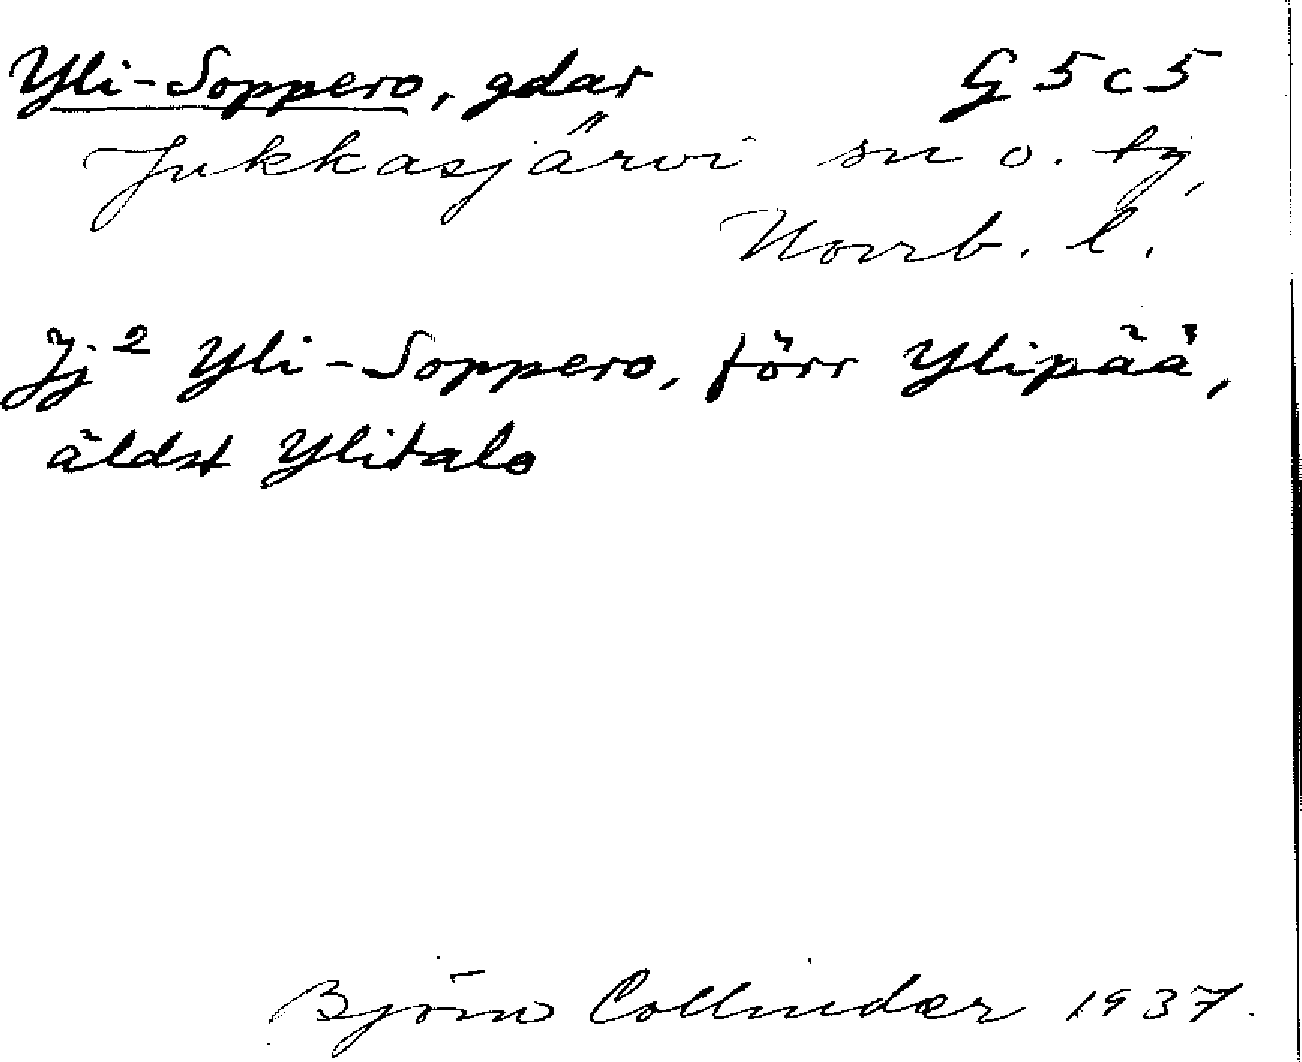 Yli-Soppero, gdar G 5 c 5
Jukkasjärvi sn o. tg,
Norrb. l.
Jj² Yli-Soppero, förr Ylipää,
äldst Ylitalo
Björn Collinder 1937.